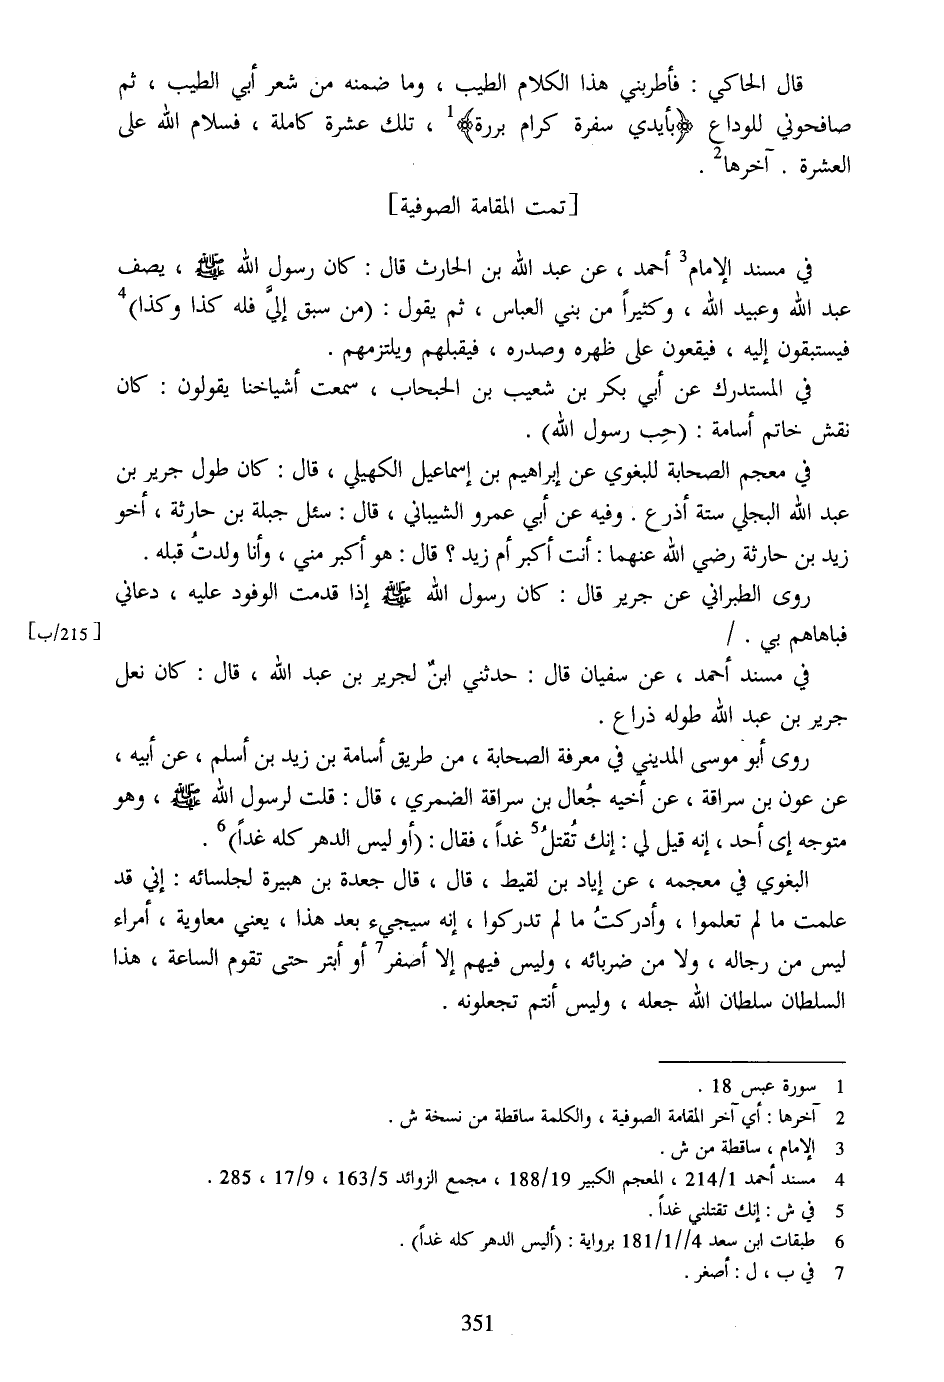 قال الحاكي : فأطربني هذا الكلام الطيب ، وما ضمنه من شعر أبي الطيب ، ثم
صافحوني للوداع ﴿بأيدي سفرة كرام بررة﴾1 ، تلك عشرة كاملة ، فسلام الله على
العشرة . آخرها2 .
[تمت المقامة الصوفية]
في مسند الإمام3 أحمد ، عن عبد الله بن الحارث قال : كان رسول الله ﷺ ، يصف
عبد الله وعبيد الله ، وكثيراً من بني العباس ، ثم يقول : (من سبق إليَّ فله كذا وكذا)4
فيستبقون إليه ، فيقعون على ظهره وصدره ، فيقبلهم ويلتزمهم .
في المستدرك عن أبي بكر بن شعيب بن الحبحاب ، سمعت أشياخنا يقولون : كان
نقش خاتم أسامة : (حِب رسول الله) .
في معجم الصحابة للبغوي عن إبراهيم بن إسماعيل الكهيلي ، قال : كان طول جرير بن
عبد الله البجلي ستة أذرع . وفيه عن أبي عمرو الشيباني ، قال : سئل جبلة بن حارثة ، أخو
زيد بن حارثة رضي الله عنهما : أنت أكبر أم زيد ؟ قال : هو أكبر مني ، وأنا ولدتُ قبله .
روى الطبراني عن جرير قال : كان رسول الله ﷺ إذا قدمت الوفود عليه ، دعاني
فباهاهم بي . / [215/ب]
في مسند أحمد ، عن سفيان قال : حدثني ابنٌ لجرير بن عبد الله ، قال : كان نعل
جرير بن عبد الله طوله ذراع .
روى أبو موسى المديني في معرفة الصحابة ، من طريق أسامة بن زيد بن أسلم ، عن أبيه ،
عن عون بن سراقة ، عن أخيه جُعال بن سراقة الضمري ، قال : قلت لرسول الله ﷺ ، وهو
متوجه إى أحد ، إنه قيل لي : إنك تُقتلُ5 غداً ، فقال : (أو ليس الدهر كله غداً)6 .
البغوي في معجمه ، عن إياد بن لقيط ، قال ، قال جعدة بن هبيرة لجلسائه : إني قد
علمت ما لم تعلموا ، وأدركتُ ما لم تدركوا ، إنه سيجيء بعد هذا ، يعني معاوية ، أمراء
ليس من رجاله ، ولا من ضربائه ، وليس فيهم إلا أصفر7 أو أبتر حتى تقوم الساعة ، هذا
السلطان سلطان الله جعله ، وليس أنتم تجعلونه .
1 سورة عبس 18 .
2 آخرها : أي آخر المقامة الصوفية ، والكلمة ساقطة من نسخة ش .
3 الإمام ، ساقطة من ش .
4 مسند أحمد 214/1 ، المعجم الكبير 188/19 ، مجمع الزوائد 163/5 ، 17/9 ، 285 .
5 في ش : إنك تقتلني غداً .
6 طبقات ابن سعد 4//181/1 برواية : (أليس الدهر كله غداً) .
7 في ب ، ل : أصغر .
351